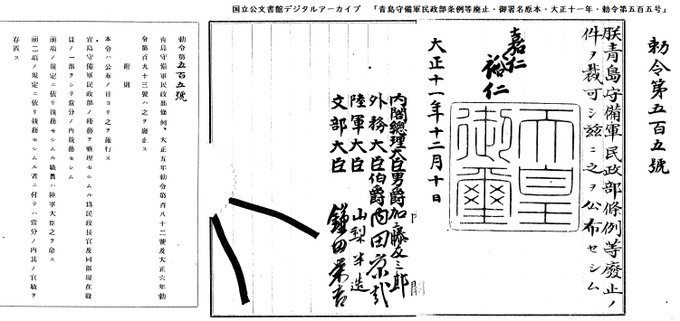 国立公文書館デジタルアーカイブ 「青島守備軍民政部条例等廃止・御署名原本・大正十一年・勅令第五百五号」
勅令第五百五號
朕青島守備軍民政部條例等廢止ノ
件ヲ裁可シ茲ニ之ヲ公布セシム
嘉仁
裕仁
天皇御璽
大正十一年十二月十日
内閣總理大臣男爵加藤友三郎
外務大臣伯爵内田康哉
陸軍大臣 山梨半造
文部大臣 鎌田榮吉
勅令第五百五號
青島守備軍民政部條例、大正五年勅令第百八十二號及大正六年勅
令第百九十三號ハ之ヲ廢止ス
附則
本令ハ公布ノ日ヨリ之ヲ施行ス
青島守備軍民政部ノ殘務ヲ整理セシムル爲民政長官及同部現在職
員ノ一部ヲシテ當分ノ内殘務セシム
前項ノ規定ニ依リ殘務セシムル職員ハ陸軍大臣之ヲ命ス
前二項ノ規定ニ依リ殘務セシムル者ニ付テハ當分ノ内其ノ官職ヲ
存置ス